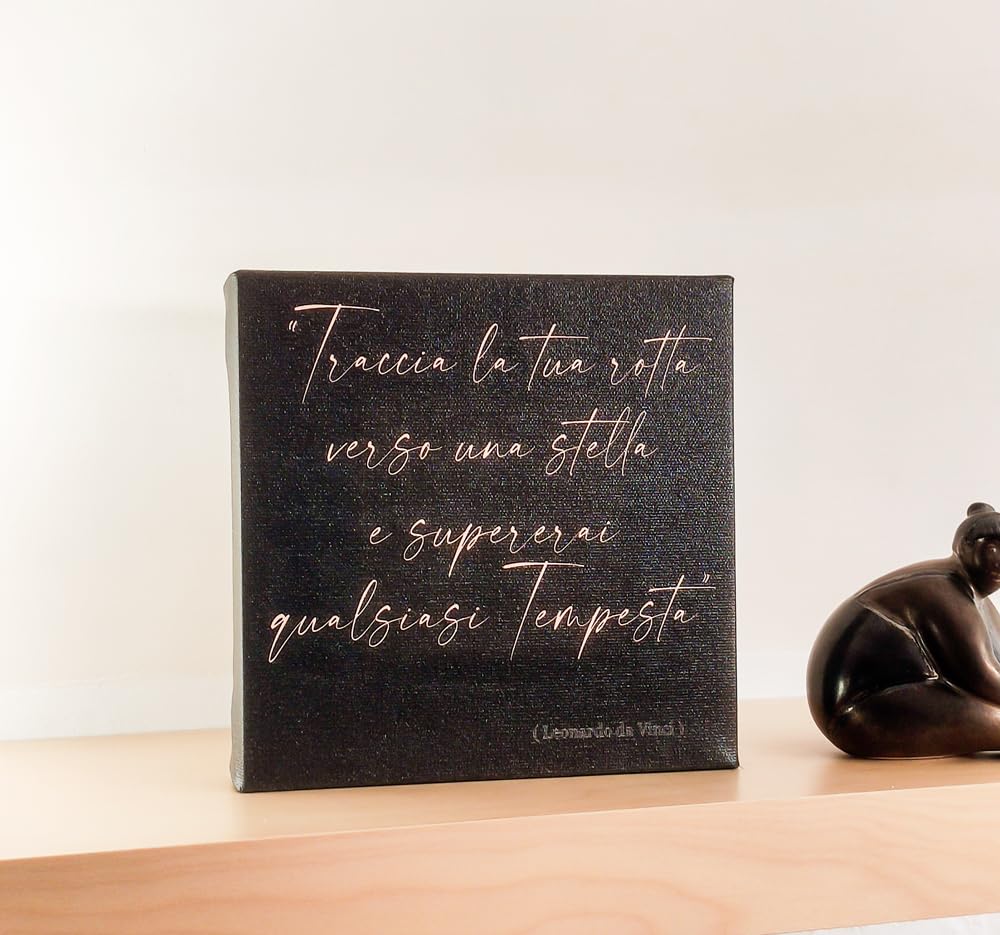 “Traccia la tua rotta
verso una stella
e supererai
qualsiasi Tempesta”
( Leonardo da Vinci )